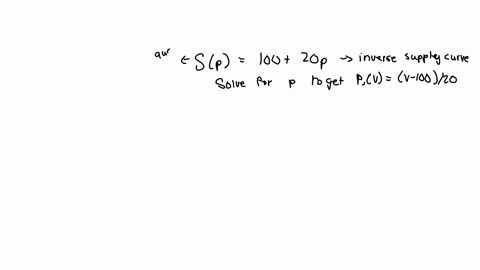 ← S(p) = 100 + 20p → inverse supply curve
Solve for p to get Ps(v) = (v-100)/20